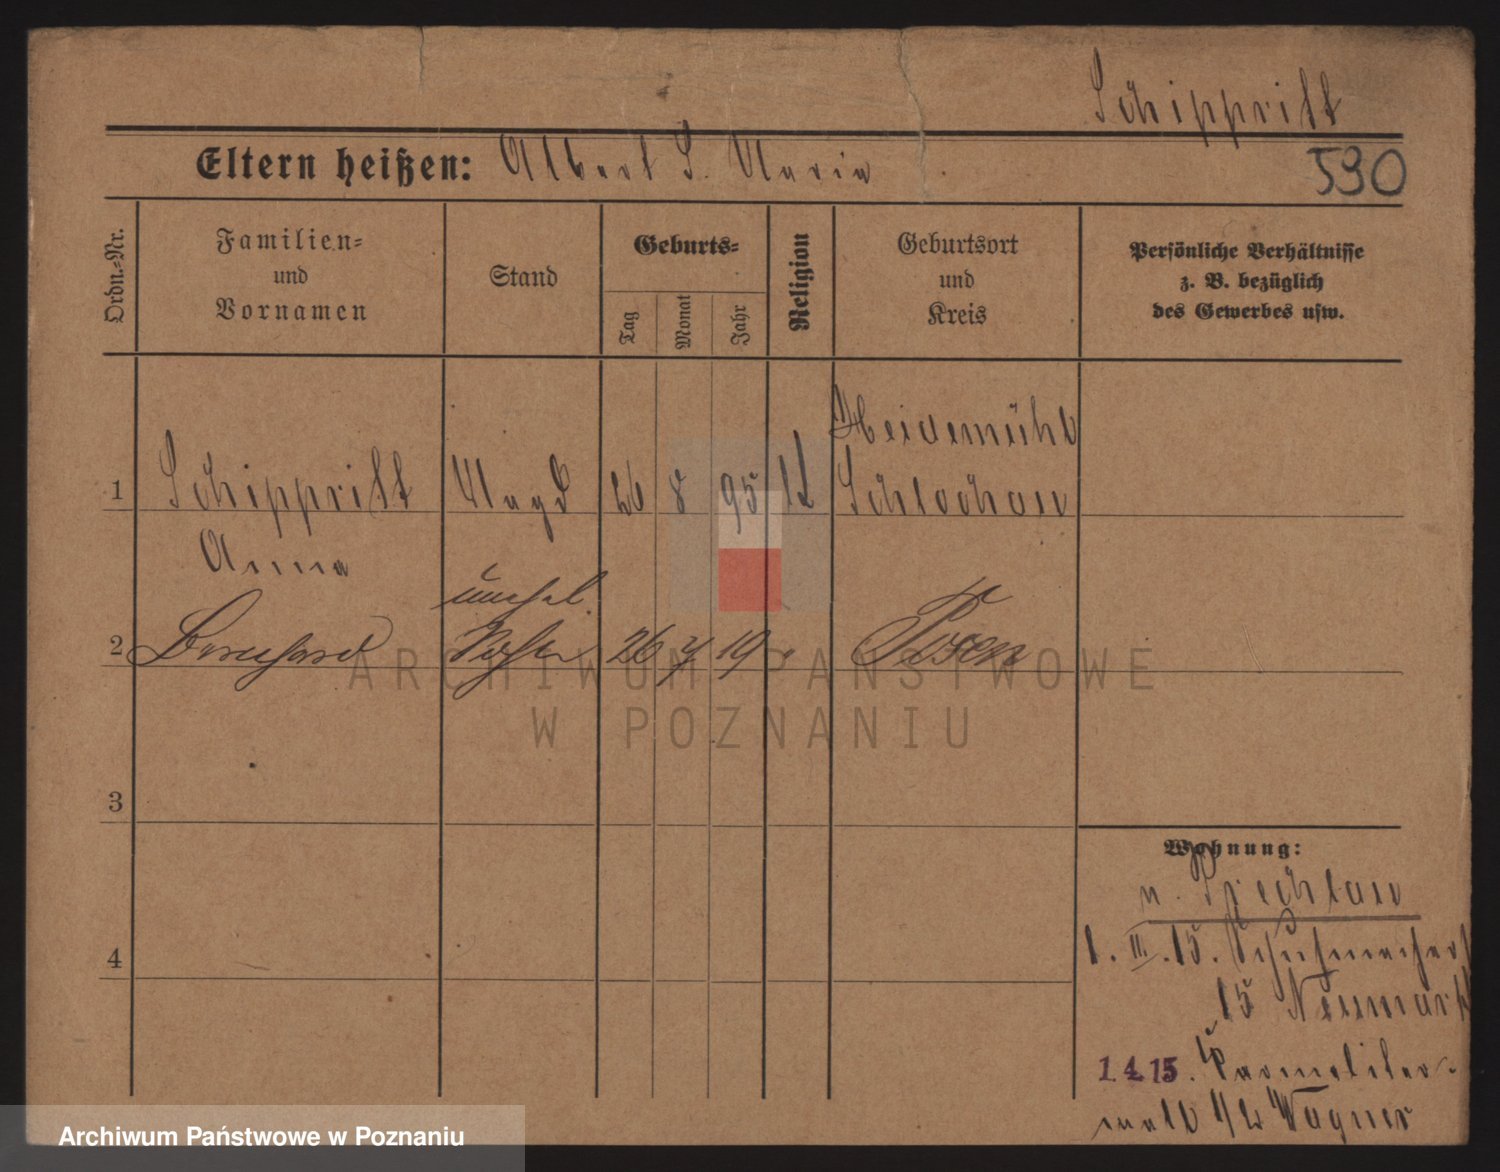 Schippritt
Eltern heißen: Albert S. Maria
590
Ordn.-Nr.
Familien-
und
Vornamen
Stand
Geburts-
Tag
Monat
Jahr
Religion
Geburtsort
und
Kreis
Persönliche Verhältnisse
z. B. bezüglich
des Gewerbes usw.
Heidemühl
1 Schippritt Magd 26 8 95 Schlochau
Anna
unehel.
2 Bernhard 26 19 " Posen
3
4
Wohnung:
n. Prechlau
1. III. 15. Schuhmacherst
15 Neumark
1.4.15. Karmeliter-
wall 1/2 Wagner
ARCHIWUM PAŃSTWOWE
W POZNANIU
Archiwum Państwowe w Poznaniu